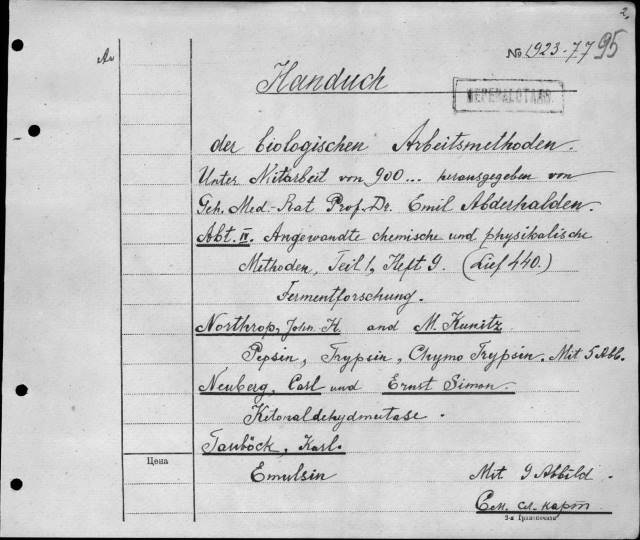 2,
№ 1923-77
95
Ar
Handuch
der biologischen Arbeitsmethoden.
Unter Mitarbeit von 900... herausgegeben von
Geh. Med.-Rat Prof. Dr. Emil Abderhalden.
Abt. II. Angewandte chemische und physikalische
Methoden, Teil 1, Heft 9. (Lief 440.)
Fermentforschung.
Northrop, John. H. and M. Kunitz
Pepsin, Trypsin, Chymo Trypsin. Mit 5 Abb.
Neuberg, Carl und Ernst Simon.
Ketonaldehydmutase.
Tauböck, Karl.
Цена
Emulsin Mit 9 Abbild.
См. сл. карт
2-я Гранпечать